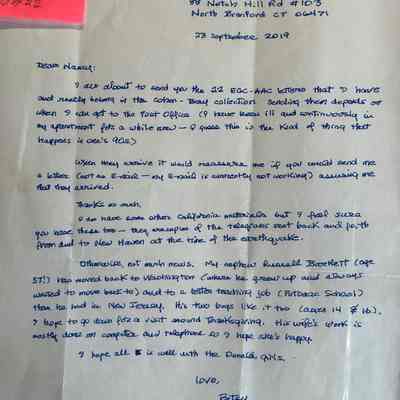 88 Notch Hill Rd #103
North Branford CT 06471
23 September 2019
Dear Nancy:
I am about to send you the 22 EGC-AAC letters that I have
and really belong in the Bray collection. Sending them depends on
when I can get to the Post Office (I have been ill and continuously in
my apartment for a while now - I guess this is the kind of thing that
happens in one's 90s)
When they arrive it would reassure me if you could send me
a letter (not an E-mail - my E-mail is currently not working) assuring me
that they arrived.
Thanks so much.
I do have some other California materials but I feel sure
you have these too - they examples of the telegrams sent back and forth
from and to New Haven at the time of the earthquake.
Otherwise, not much news. My nephew Russell (age
57!) has moved back to Washington (where he grew up and always
wanted to move back to) and to a better teaching job (Potomac School)
than he had in New Jersey. His two boys like it too (ages 14 & 16).
I hope to go down for a visit around Thanksgiving. His wife's work is
mostly done on computer and telephone so I hope she's happy.
I hope all is well with the Donald girls.
Love,
Betsy